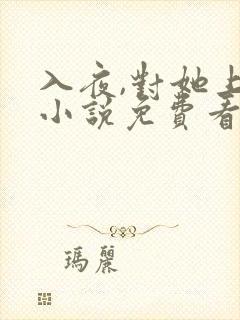 入夜,對她上
小說免費看
瑪麗